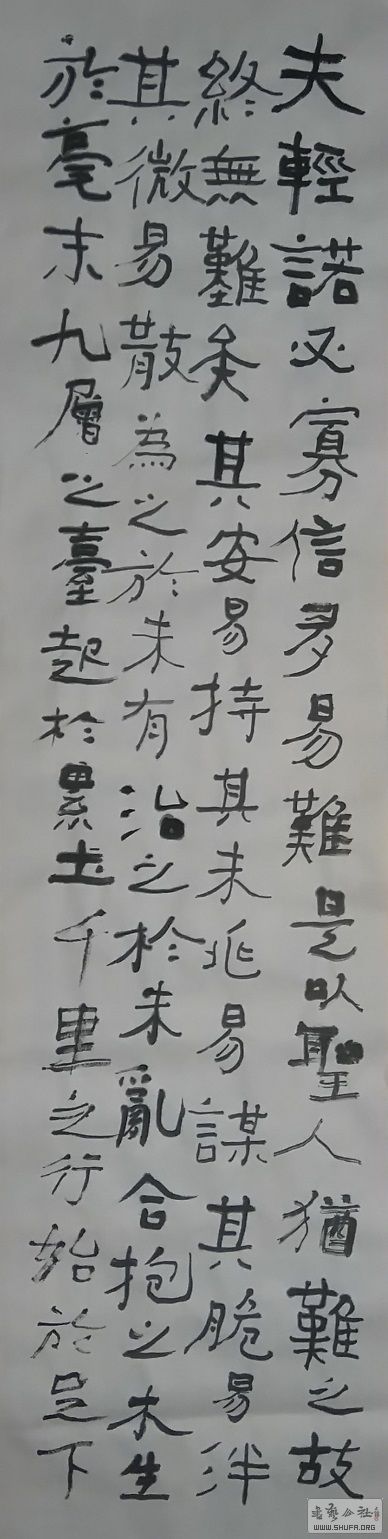 夫輕諾必寡信多易難是以聖人猶難之故
終無難矣其安易持其未兆易謀其脆易泮
其微易散為之於未有治之於未亂合抱之木生
於毫末九層之臺起於累土千里之行始於足下
書藝公社
WWW.SHUFA.ORG